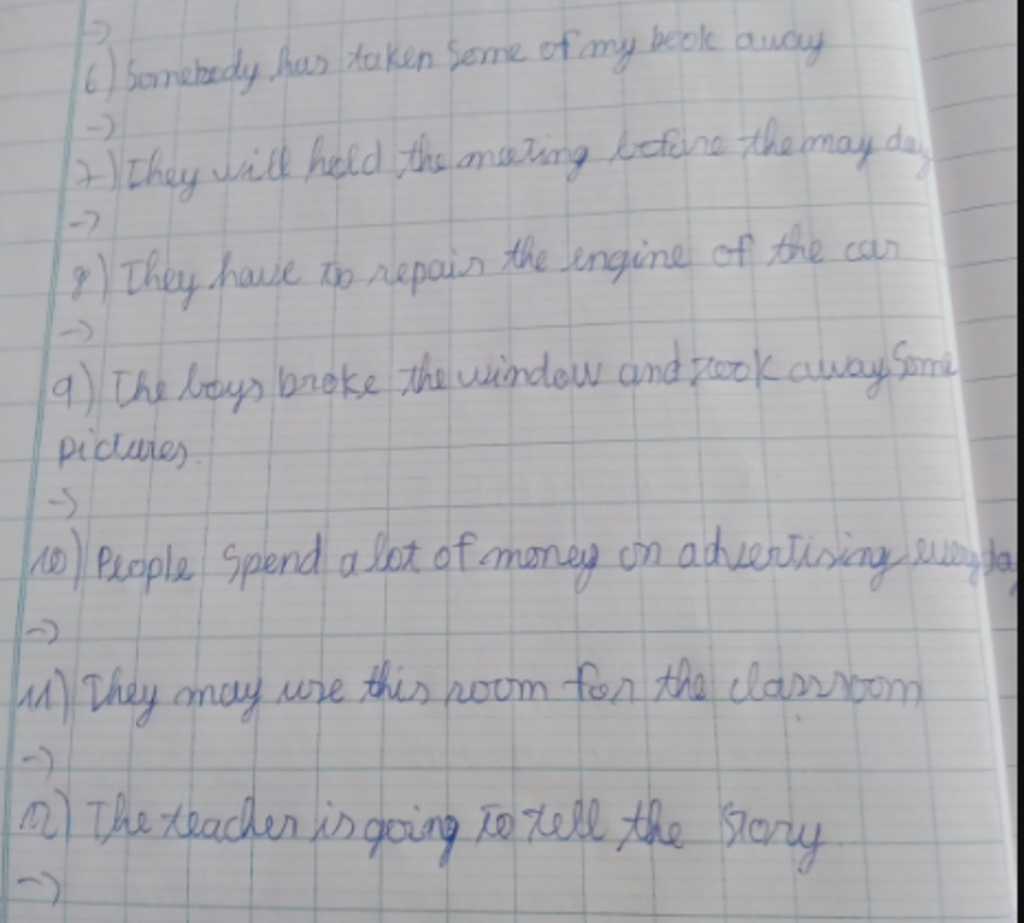 ->
6) Somebody has taken some of my book away
->
7) They will hold the meeting before the may day
->
8) They have to repair the engine of the car
->
9) The boys broke the window and took away some
pictures.
->
10) People spend a lot of money on advertising everyday
->
11) They may use this room for the classroom
->
12) The teacher is going to tell the story
->